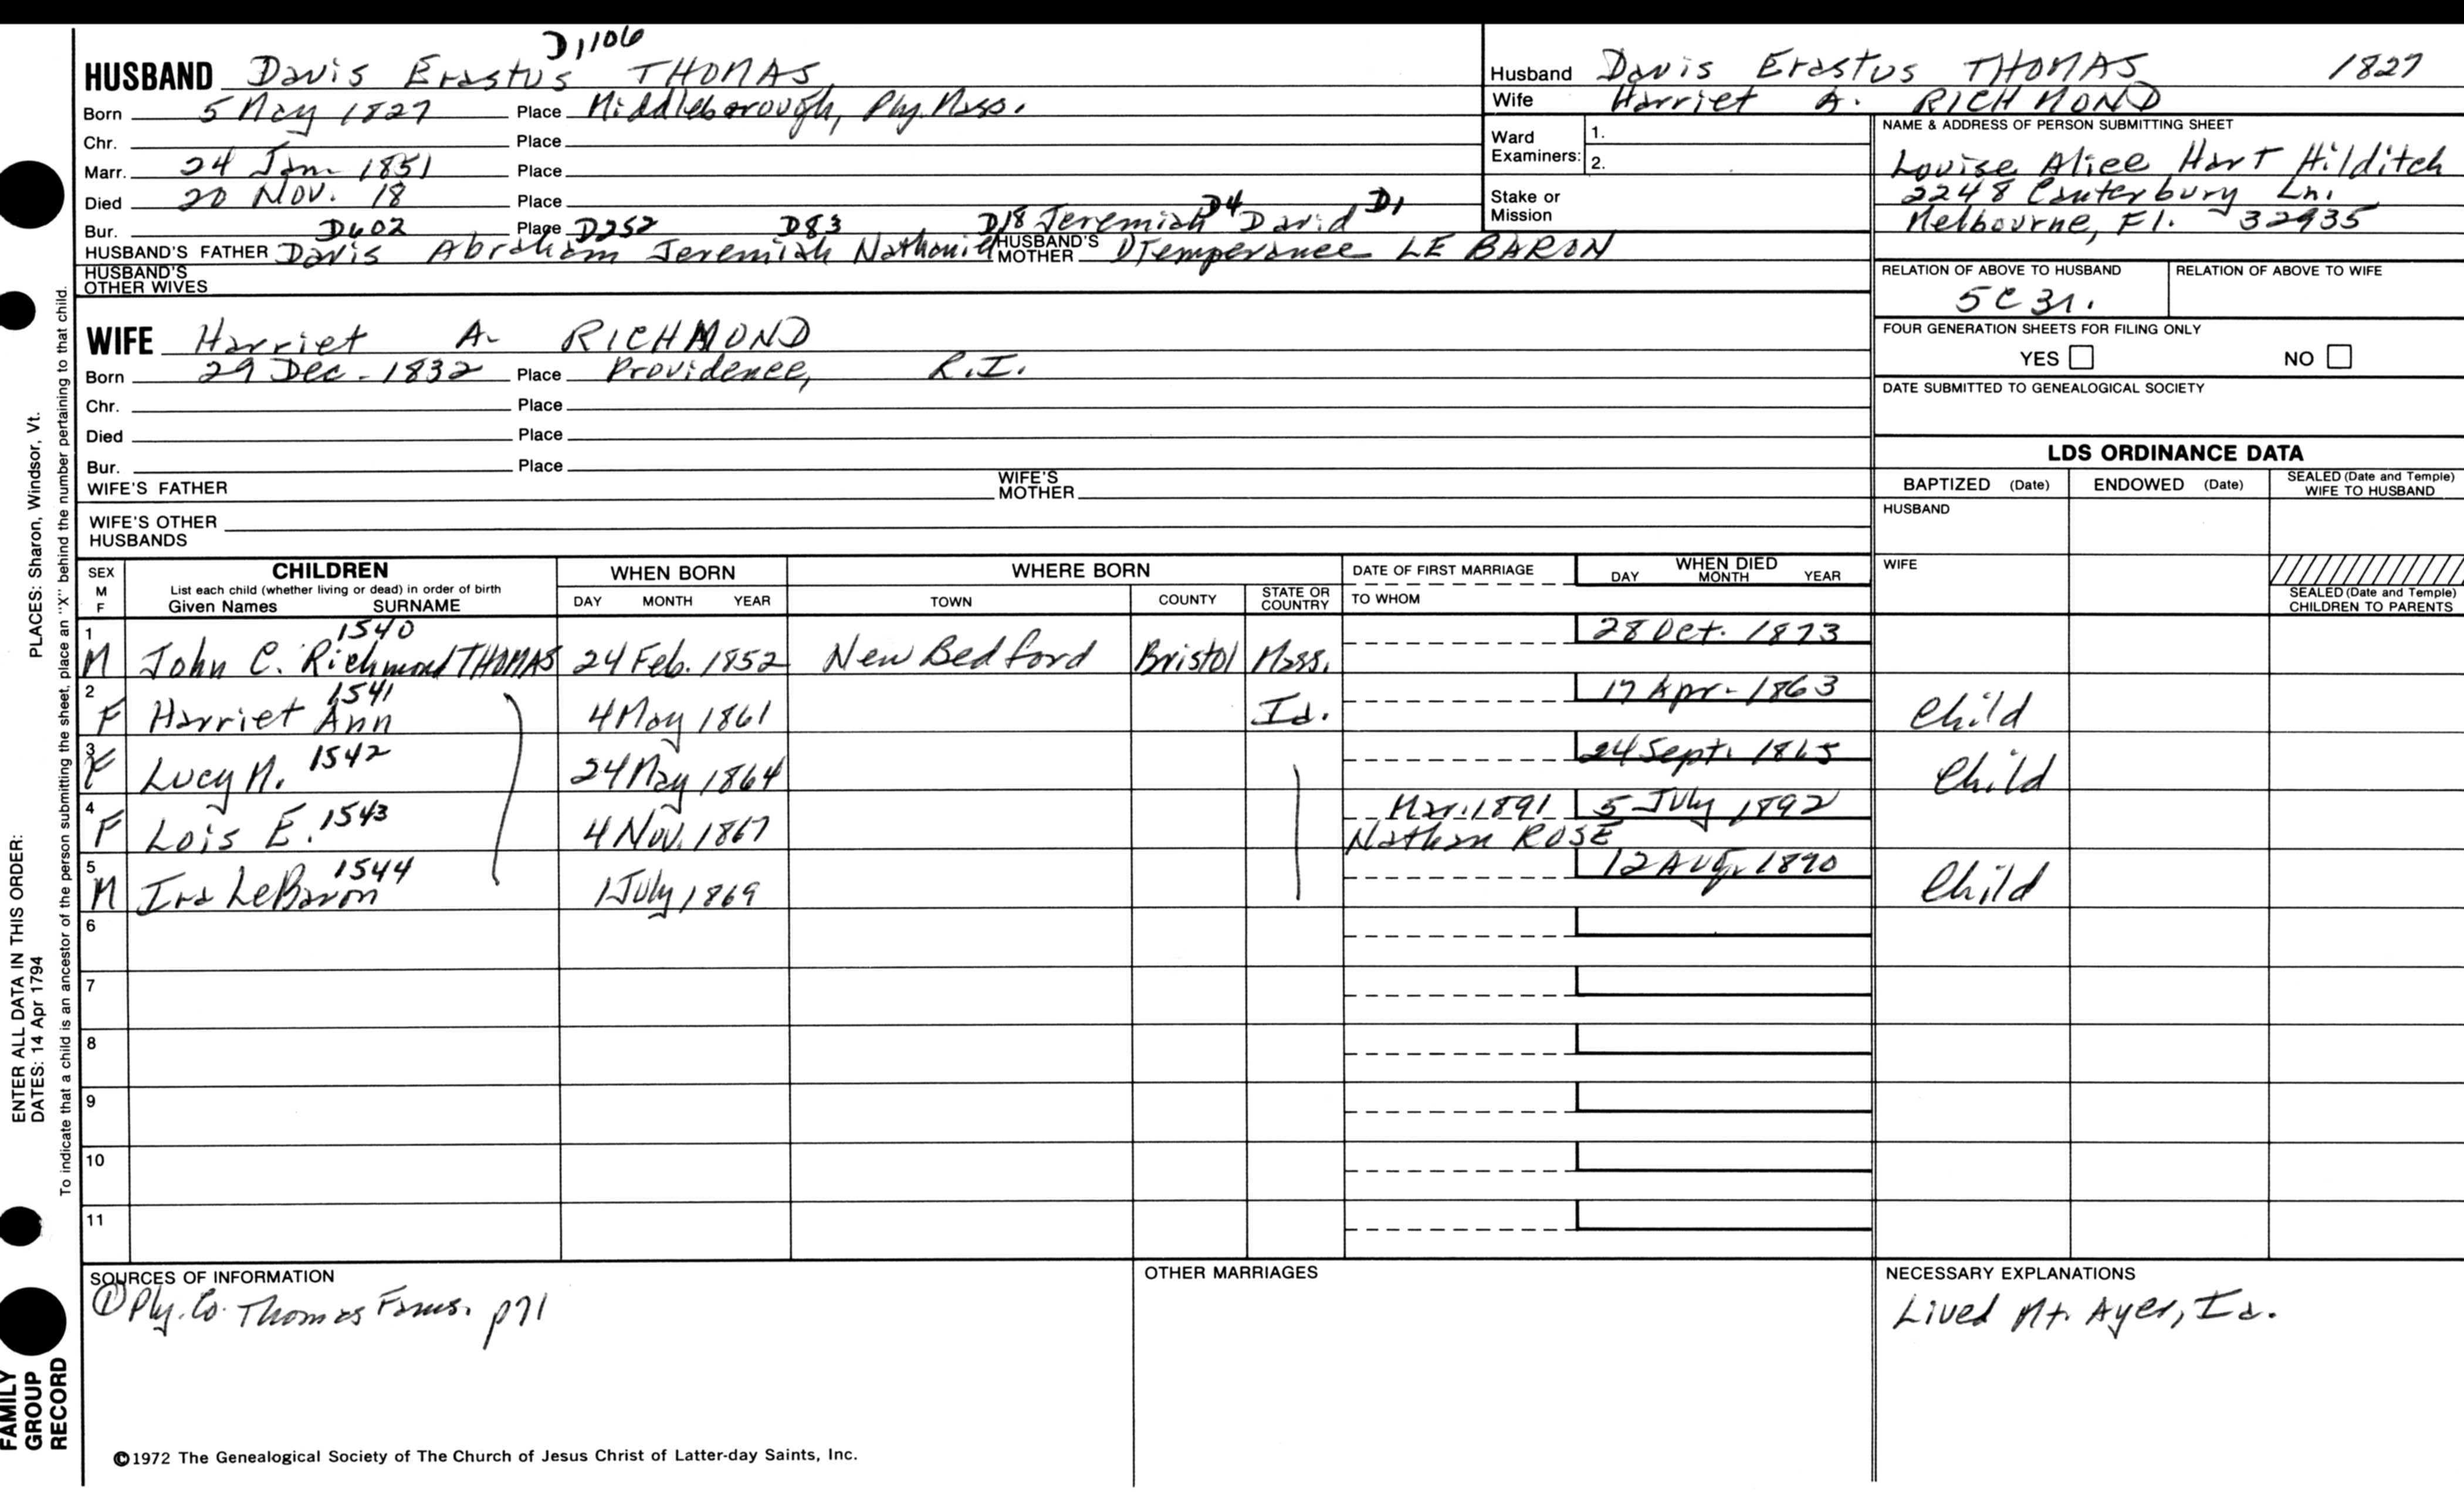 D1106
HUSBAND Davis Erastus THOMAS
Born 5 May 1827 Place Middleborough, Ply. Mass.
Chr. Place
Marr. 24 Jan 1851 Place
Died 20 Nov. 18 Place
Bur. Place
D602 D252 D83 D18 Jeremiah D4 David D1
HUSBAND'S FATHER Davis Abraham Jeremiah Nathaniel HUSBAND'S MOTHER Temperance LE BARON
HUSBAND'S OTHER WIVES
WIFE Harriet A. RICHMOND
Born 29 Dec. 1832 Place Providence, R.I.
Chr. Place
Died Place
Bur. Place
WIFE'S FATHER WIFE'S MOTHER
WIFE'S OTHER HUSBANDS
Husband Davis Erastus THOMAS 1827
Wife Harriet A. RICHMOND
Ward Examiners: 1.
2.
Stake or Mission
NAME & ADDRESS OF PERSON SUBMITTING SHEET
Louise Alice Hart Hilditch
2248 Canterbury Ln.
Melbourne, Fl. 32935
RELATION OF ABOVE TO HUSBAND RELATION OF ABOVE TO WIFE
5C3r.
FOUR GENERATION SHEETS FOR FILING ONLY
YES NO
DATE SUBMITTED TO GENEALOGICAL SOCIETY
LDS ORDINANCE DATA
BAPTIZED (Date) ENDOWED (Date) SEALED (Date and Temple) WIFE TO HUSBAND
HUSBAND
WIFE
SEALED (Date and Temple) CHILDREN TO PARENTS
SEX M F CHILDREN WHEN BORN WHERE BORN DATE OF FIRST MARRIAGE WHEN DIED
List each child (whether living or dead) in order of birth
Given Names SURNAME DAY MONTH YEAR TOWN COUNTY STATE OR COUNTRY TO WHOM DAY MONTH YEAR
1 M John C. Richmond THOMAS 1540 24 Feb. 1852 New Bedford Bristol Mass. 28 Oct. 1873
2 F Harriet Ann 1541 4 May 1861 Ia. 17 Apr. 1863 Child
3 F Lucy M. 1542 24 May 1864 24 Sept. 1865 Child
4 F Lois E. 1543 4 Nov. 1867 Mar. 1891 5 July 1892
Nathan ROSE
5 M Ira LeBaron 1544 1 July 1869 12 Aug. 1870 Child
6
7
8
9
10
11
SOURCES OF INFORMATION
① Ply. Co. Thomas Fams. p71
OTHER MARRIAGES
NECESSARY EXPLANATIONS
Lived Mt. Ayer, Ia.
©1972 The Genealogical Society of The Church of Jesus Christ of Latter-day Saints, Inc.
ENTER ALL DATA IN THIS ORDER:
DATES: 14 Apr 1794 PLACES: Sharon, Windsor, Vt.
To indicate that a child is an ancestor of the person submitting the sheet, place an "X" behind the number pertaining to that child.
FAMILY
GROUP
RECORD